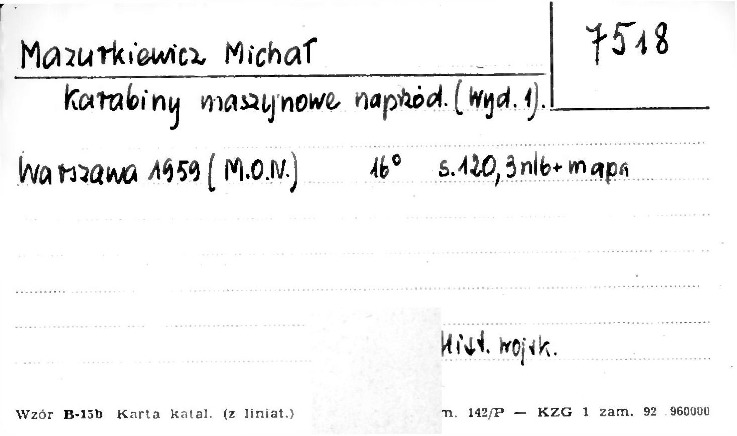 Mazurkiewicz Michał
7518
Karabiny maszynowe naprzód. (Wyd. 1).
Warszawa 1959 (M.O.N.) 16° s. 120, 3 nlb + mapa
Hist. wojsk.
Wzór B-15b Karta katal. (z liniat.) m. 142/P — KZG 1 zam. 92 960000